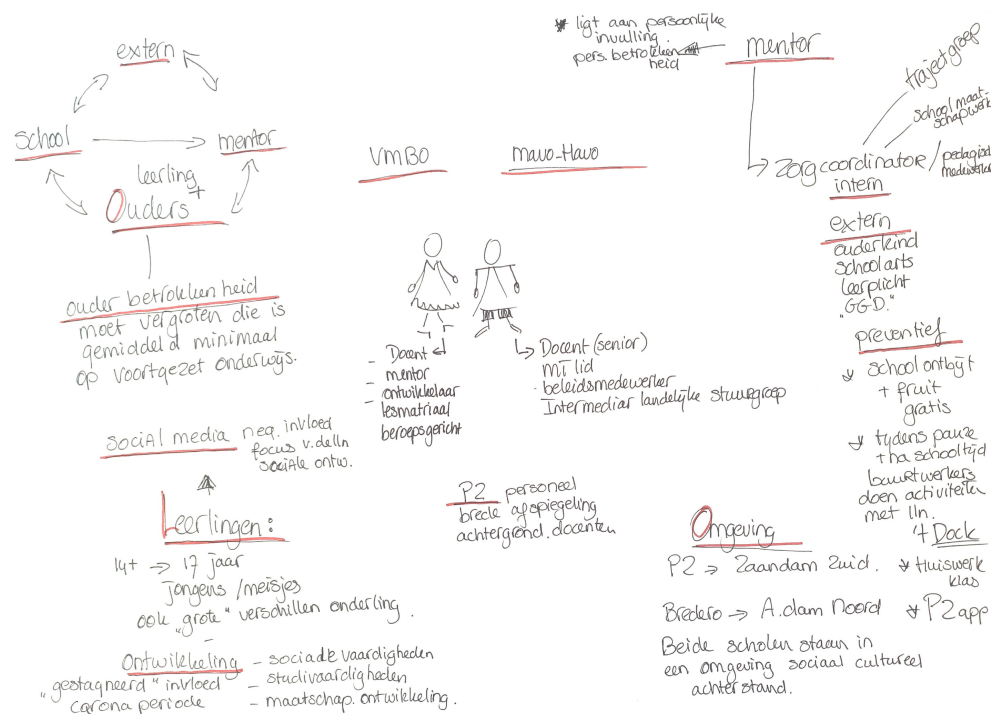 extern
school
mentor
leerling
+
Ouders
ouder betrokken heid
moet vergroten die is
gemiddeld minimaal
op voortgezet onderwijs.
social media neg. invloed
focus v. delln
sociale ontw.
Leerlingen:
14+ → 17 jaar
jongens / meisjes
ook "grote" verschillen onderling.
Ontwikkeling
"gestagneerd" invloed
carona periode
- sociale vaardigheden
- studivaardigheden
- maatschap. ontwikkeling.
VMBO
mavo-Havo
- Docent
- mentor
- ontwikkelaar
lesmatriaal
beroepsgericht
Docent (senior)
MT lid
beleidsmedewerker
Intermediar landelijke stuurgroep
P2 personeel
brede afspiegeling
achtergrond. docenten
* ligt aan persoonlijke
invulling.
pers. betrokken
heid
mentor
trajectgroep
school maat-
schapwerk
→ Zorgcoordinator / pedagisch
medewerker
intern
extern
ouderkind
schoolarts
leerplicht
"GGD."
preventief
school ontbijt
+ fruit
gratis
tijdens pauze
+ na schooltijd
buurtwerkers
doen activiteiten
met lln.
Dock
* Huiswerk
klas
* P2 app
Omgeving
P2 → Zaandam Zuid.
Bredero → A.dam Noord
Beide scholen staan in
een omgeving sociaal cultureel
achterstand.